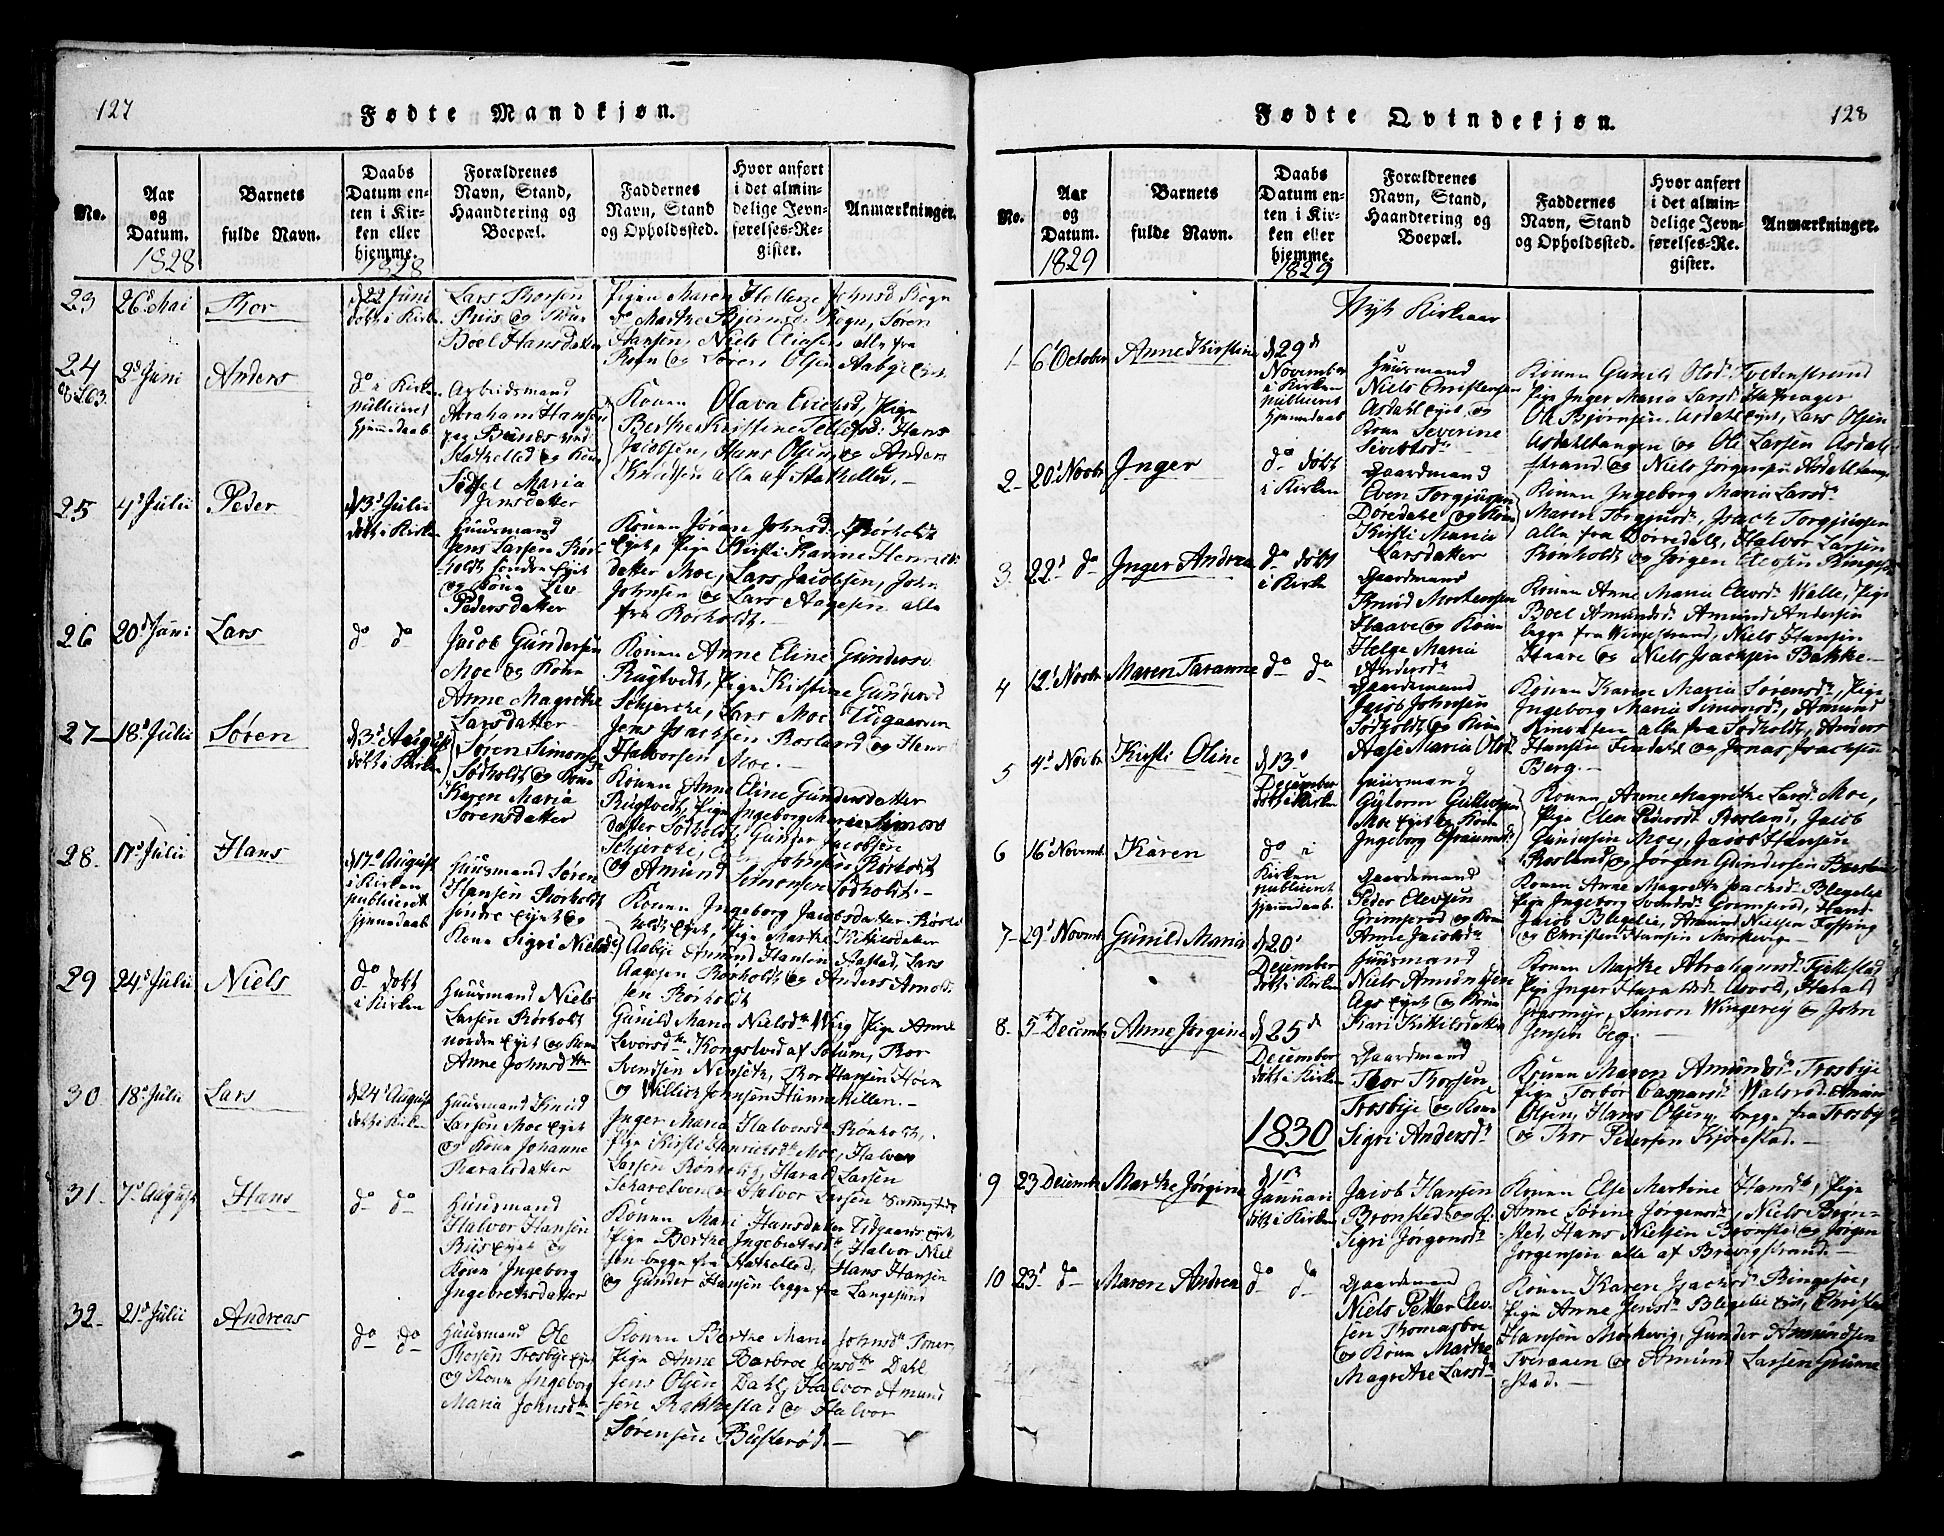 127
Fødte Mandkjøn.
No.
Aar
og
Datum.
1828
Barnets
fulde Navn.
Daabs
Datum en-
ten i Kir-
ken eller
hjemme.
1828
Forældrenes
Navn, Stand,
Haandtering og
Boepæl.
Faddernes
Navn, Stand
og Opholdssted.
Hvor anført
i det almin-
delige Jevn-
førelses-Re-
gister.
Anmærkninger.
23
26d Mai
Thor
d 22 Juni
døbt i Kirk
Lars Thorsen
Boel Hansdatter
Pigen Maren Hellene Johnsd Rogn
do Marthe Bjørnsd: Rogn, Søren
Hansen, Niels Eliasen alle fra
Rogn og Søren Olsen Aabye
24
2d Juni
Anders
do i Kirken
publiceret
hjemmedaab
Arbeidsmand
Abraham Hansen
Stathelled og Kone
Sidsel Maria
Jensdatter
Konen Olava Erichsd, Pige
Berthe Kirstine Tellefsd: Hans
Jacobsen, Hans Olsen og Anders
Knudsen alle af Stathelled.
25
4d Julii
Peder
d 13d Julii
døbt i Kirken
Huusmand
Jens Larsen Rør-
holdt søndre Eyet
og Kone Liv
Pedersdatter
Konen Jøran Johnsd, Rørholdt
Eyet, Pige Kirsti Karine Henrichs
datter Moe, Lars Jacobsen, John
Johnsen og Lars Aagesen alle
fra Rørholdt.
26
20d Juni
Lars
do do
Jacob Gundersen
Moe og Kone
Anne Magrethe
Larsdatter
Konen Anne Eline Gundersd
Rugtvedt, Pige Kirstine Gundersd
Schjerche, Lars Moe, Vugaaren
Jens Isachsen Rosland og Henr
Halvorsen Moe.
27
18d Julii
Søren
d 3d August
døbt i Kirken
Søren Simonsen
Sødholdt og Kone
Karen Maria
Sørensdatter
Konen Anne Eline Gundersdatter
Rugtvedt, Pige Ingeborg Maria Simons
datter Sødholdt, Gunder Jacobsen
Schjerche, Johnsen Rørholdt
og Amund Simonsen Sødholdt.
28
17d Julii
Hans
d 17d August
i Kirken
publiceret
hjemmedaab
Huusmand Søren
Hansen Rørholdt
søndre Eyet og
Kone Sigri Nielsd
Konen Ingeborg Jacobsdatter Rørh
holdt Eyet, Pige Marthe Kittilsdatter
Aabye Amund Hansen Aastad, Lars
Aagesen Rørholdt og Anders Arnold
sen Rørholdt
29
24d Julii
Niels
do døbt
i Kirken
Huusmand Niels
Larsen Rørholdt
nordre Eyet og Kone
Anne Johnsdtr
Gunild Maria Nielsdtr Wiig Pige Anne
Levorsdtr Kongstvedt af Solum, Thor
Svendsen Nensæth, Thor Hansen Høen
og Willich Johnsen Hunnekillen.
30
18d Julii
Lars
d 24d August
døbt i Kirken
Huusmand Knud
Larsen Moe Eyet
og Kone Johanne
Haralsdatter
Inger Maria Halvorsdtr Rønholdt,
Pige Kirsti Henrichsdtr Moe, Halvor
Larsen Rønholdt, Harald Larsen
Scharelven og Halvor Larsen
31
7d August
Hans
do do
Huusmand
Halvor Hansen
Riis Eyet og
Kone Ingeborg
Ingebretsdatter
Konen Mari Hansdatter Eyet,
Pige Berthe Ingebretsd, Halvor Niel
sen begge fra Stathelled, Hans Hansen
og Gunder Hansen begge fra Langesund
32
21d Julii
Andreas
do do
Huusmand Ole
Thorsen Trosbye Eyet
og Kone Ingeborg
Maria Johnsdtr
Konen Berthe Marie Johnsdtr
Pige Anne Barbroe Jensdtr Dahl
Jens Olsen Dahl, Halvor Amund
sen Rakkestad og Halvor
Sørensen Busterød.
128
Fødte Qvindekjøn.
No.
Aar
og
Datum.
1829
Barnets
fulde Navn.
Daabs
Datum en-
ten i Kir-
ken eller
hjemme.
1829
Forældrenes
Navn, Stand,
Haandtering og
Boepæl.
Faddernes
Navn, Stand
og Opholdssted.
Hvor anført
i det almin-
delige Jevn-
førelses-Re-
gister.
Anmærkninger.
Nyt Kirkeaar
1
6d October
Anne Kirstine
d 29d
November
i Kirken
publiceret
hjemmedaab
Huusmand
Niels Christensen
Asdahl Eyet og
Kone Severine
Sivertsd
Konen Gunild Olsd Tvetenstrand
Pige Inger Maria Larsd:
Ole Bjørnsen Asdahl Eyet, Lars Olsen
Asdahltangen og Ole Larsen Asdal-
strand og Niels Jørgensen Asdahltangen
2
20d Novbr
Inger
do døbt
i Kirken
Gaardmand
Even Torgjussen
Dørdahl og Kone
Kirsti Maria
Larsdatter
Konen Ingeborg Maria Larsd:
Maren Torgjusd, Isach Torgjussen
alle fra Dørredahl, Halvor Larsen
Rønholdt og Jørgen Elevsen Ringesøe
3
22d do
Inger Andrea
do døbt
i Kirke
Gaardmand
Knud Mortensen
Haave og Kone
Helge Maria
Andersd
Konen Anne Maria Elevsd Walle, Pige
Boel Amundsd Amund Andersen
begge fra Wingestrand, Niels Hansen
Haave og Niels Isachsen Bakke.
4
12d Novbr
Maren Taranne
do do
Gaardmand
Jacob Johnsen
Sødholdt og Kone
Aase Maria Olsd
Konen Karen Maria Sørensd, Pige
Ingeborg Maria Simonsd, Amund
Simonsen alle fra Sødholdt, Anders
Hansen Findahl og Jonas Isachsen
Berg.
5
4d Novbr
Kirsti Oline
d 13d
December
døbt i Kirken
Huusmand
Guttorm Guttormsen
Moe Eyet og Kone
Ingeborg
Konen Anne Magrethe Larsd: Moe,
Pige Elen Pedersd Rosland, Jacob
Gundersen Moe, Jacob Hansen
Rosland og Jørgen Gundersen
6
16d Novemb.
Karen
do i
Kirken
publiceret
hjemmedaab
Gaardmand
Peder Elevsen
Grimsrød og Kone
Anne Jacobsd
Konen Anne Magrethe Isachsd: Blegelie
Pige Ingeborg Svendsd: Grimsrød, Hans
Jacob Blegelie, Amund Nielsen Fossing
og Christen Hansen Mørkevig.
7
29d Novembr
Gunild Maria
d 20d
December
døbt i Kirken
Huusmand
Niels Amundsen
Aas Eyet og Kone
Kari Kittilsdatter
Konen Marthe Abrahamsd: Fjellstad
Pige Inger Harald
Simon Wingerej og John
Jensen Eeg.
8
5d Decembr
Anne Jørgine
d 25d
December
døbt i Kirken
Gaardmand
Thor Thorsen
Trosbye og Kone
Sigri Andersdtr
Konen Maren Amundsd Trosbye
Pige Torbør Casparsd: Walsrød, Amund
Olsen, Hans Olsen, begge fra Trosby
og Thor Pedersen Kjørestad.
1830
9
23 Decembr
Marthe Jørgine
d 13
Januari
døbt i Kirken
Jacob Hansen
Brønsted og K:
Sigri Jørgensdtr
Konen Else Martine Hansdtr, Pige
Anne Sørine Jørgensd, Niels Brøn-
sted, Hans Nielsen Brønsted og Jørgen
Jorgensen alle af Brevigstrand.
10
23d do
Maren Andrea
do do
Gaardmand
Niels Petter Elev-
sen Thomasboe
og Kone Marthe
Magrethe Larsdtr
Konen Karen Isachsd: Ringesøe,
Pige Anne Jensd: Blegelie Eyet, Christen
Hansen Mørkevig, Gunder Amundsen
Tveraaen og Amund Larsen Grumme
stad.